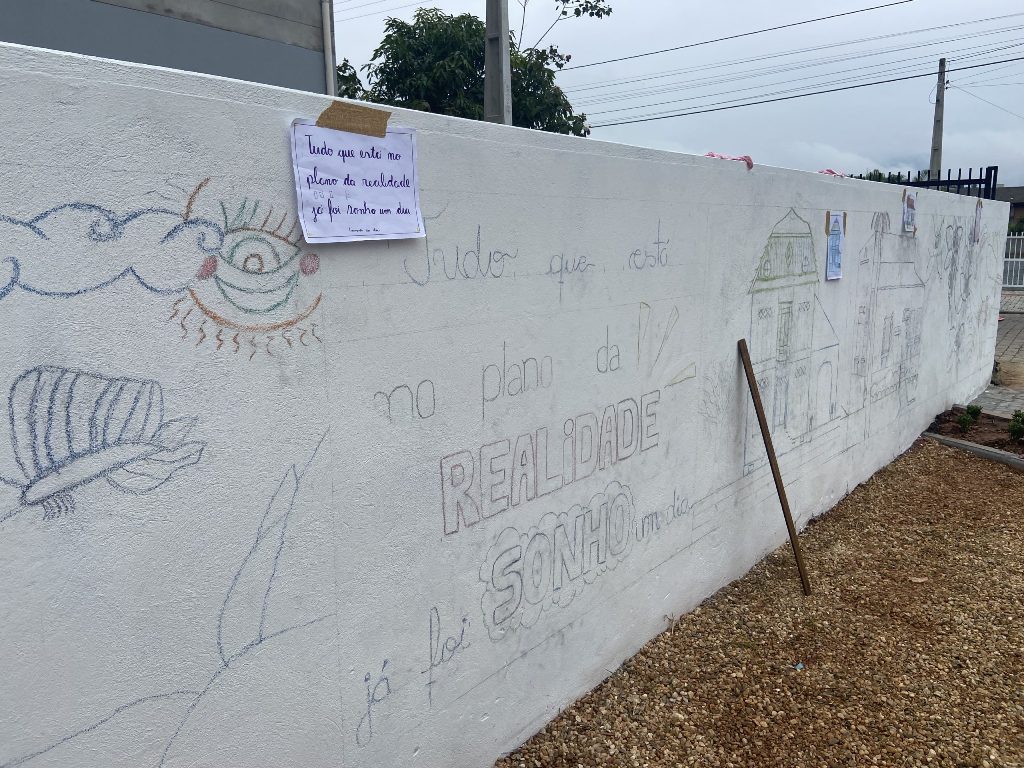 Tudo que está no
plano da realidade
já foi sonho um dia
Tudo que está
no plano da
REALIDADE
já foi SONHO um dia